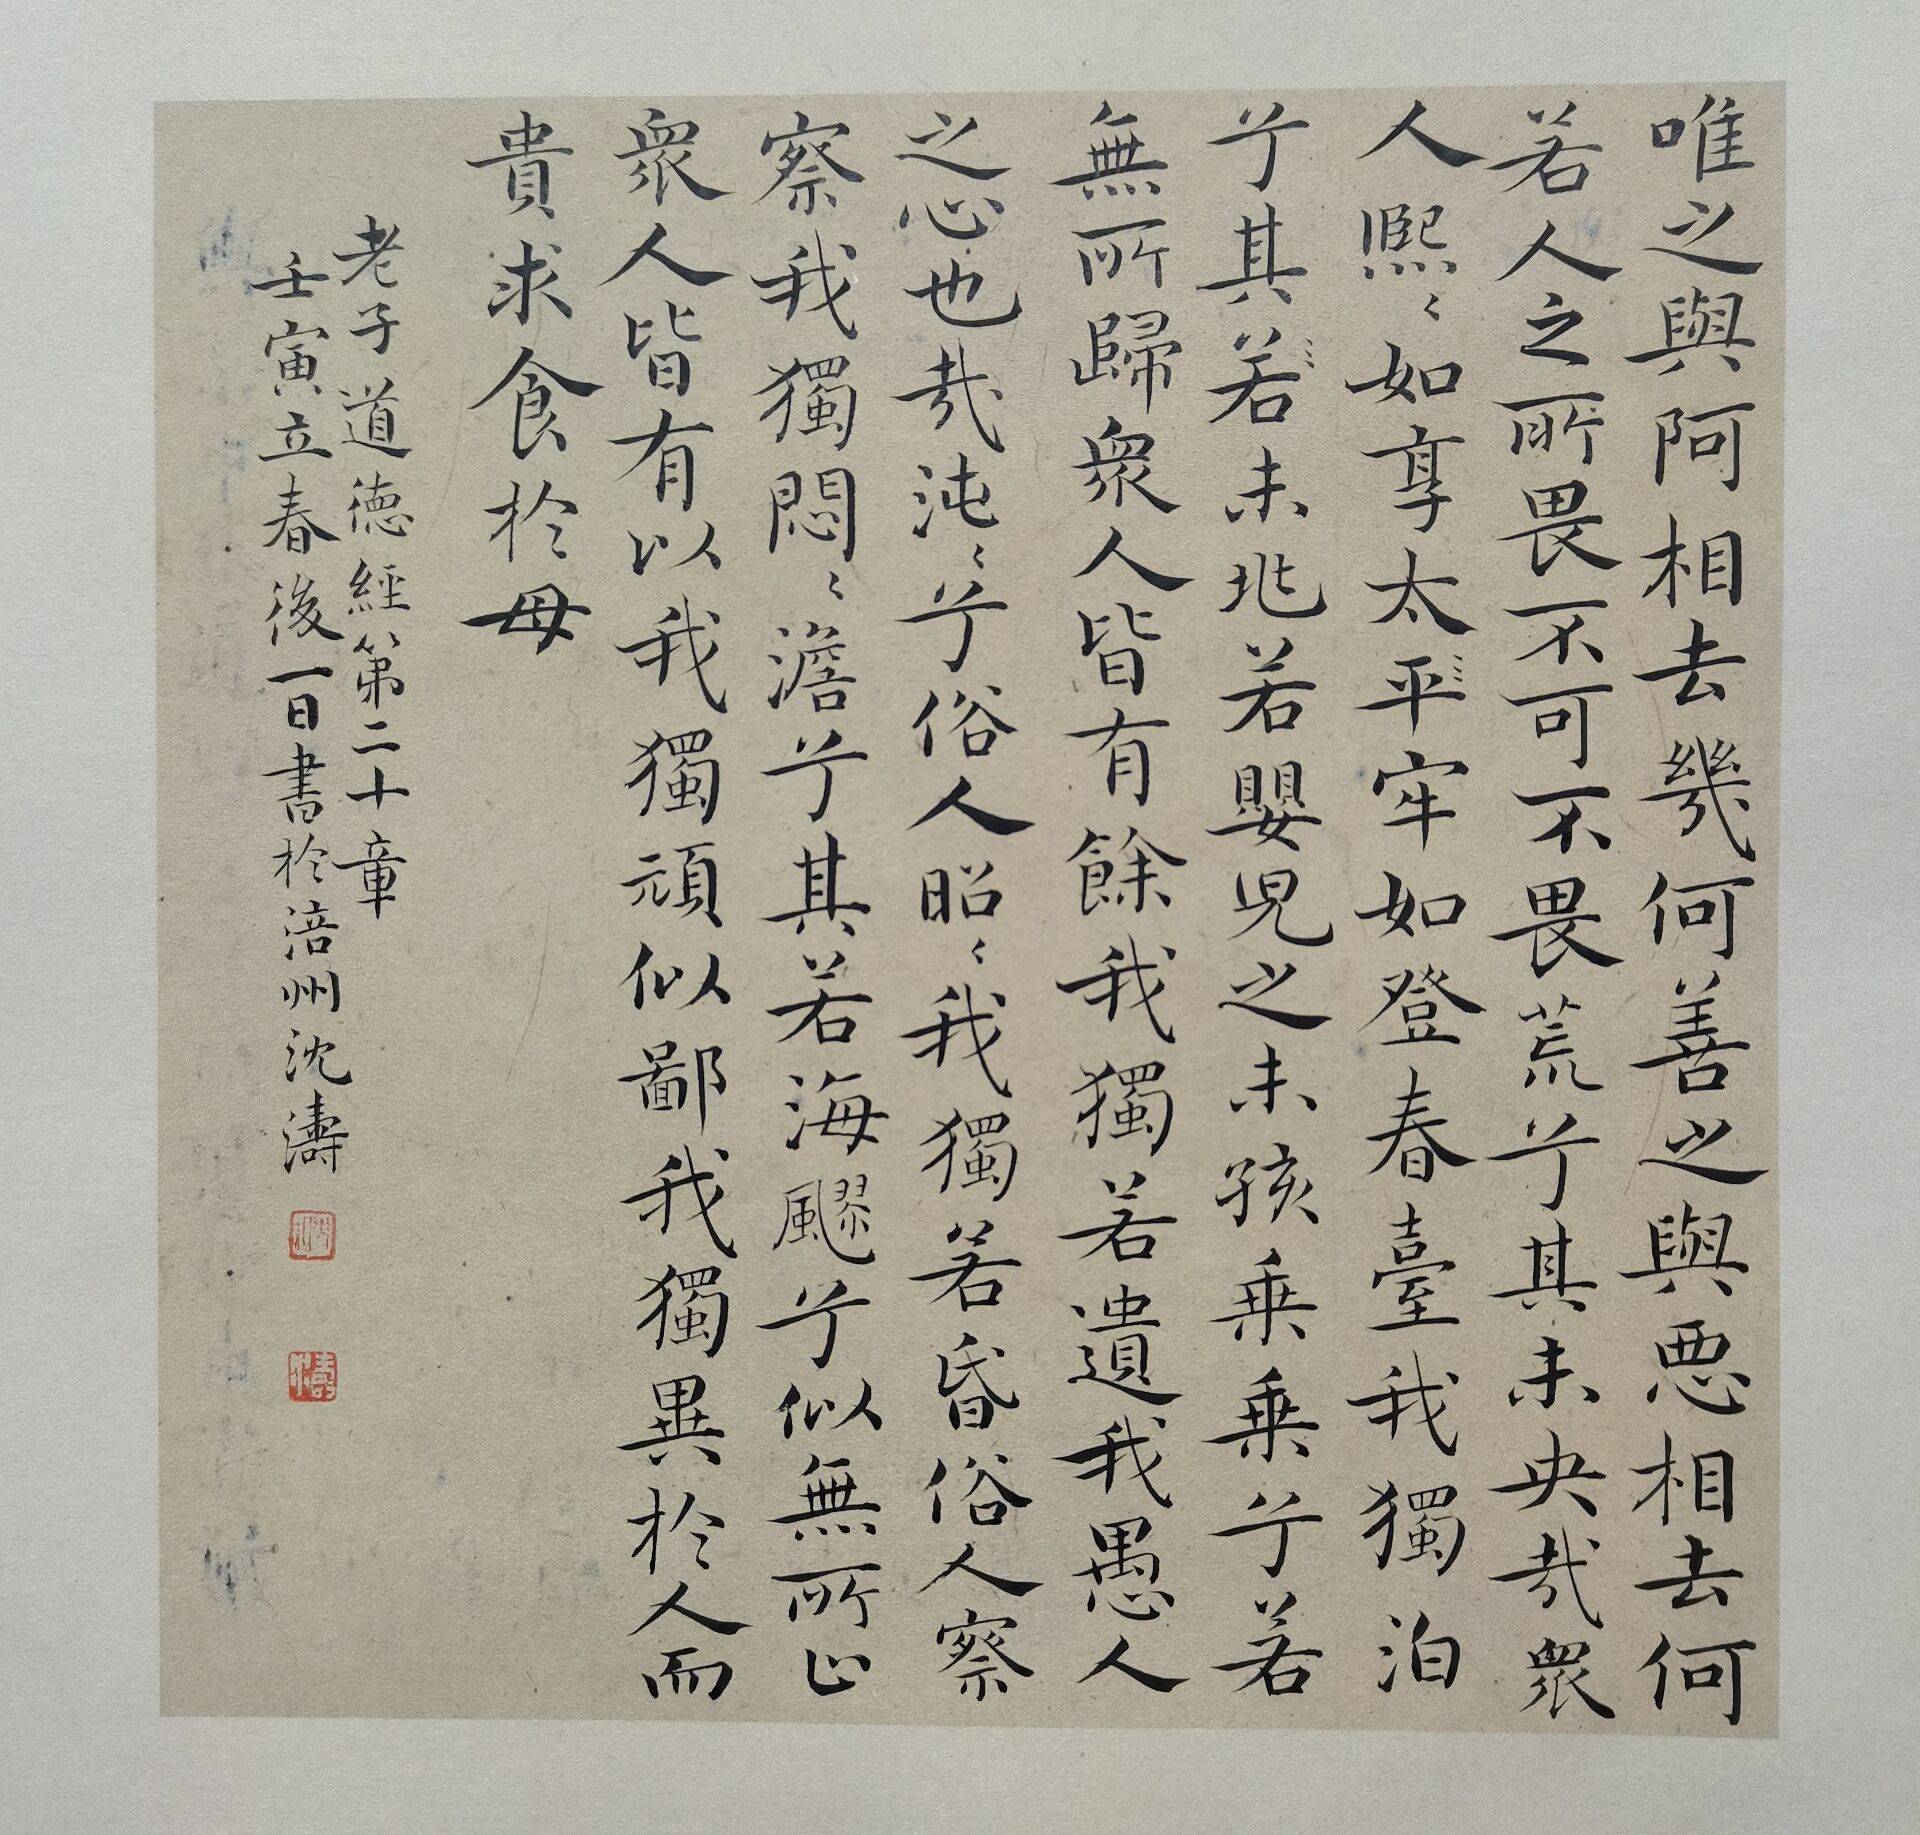 唯之與阿相去幾何善之與惡相去何
若人之所畏不可不畏荒兮其未央哉眾
人熙〻如享太平牢如登春臺我獨泊
兮其若未兆若嬰兒之未孩乘乘兮若
無所歸眾人皆有餘我獨若遺我愚人
之心也哉沌〻兮俗人昭〻我獨若昏俗人察
察我獨悶〻澹兮其若海飂兮似無所止
眾人皆有以我獨頑似鄙我獨異於人而
貴求食於母
老子道德經第二十章
壬寅立春後一日書於涪州沈濤